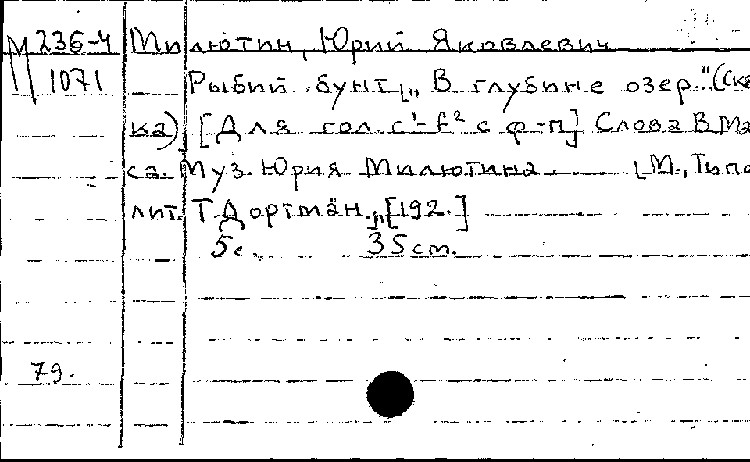 М 236-4 Милютин, Юрий Яковлевич
1071 Рыбий бунт „В глубине озер" (Ска
ка) [Для гол. c¹-f² с ф-п] Слова В Ма
са. Муз. Юрия Милютина. [М., Типо
лит. Т Дортман", [192.]
5с. 35 cm.
79.